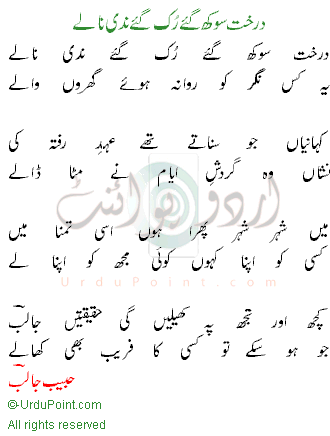 درخت سوکھ گئے رُک گئے ندی نالے
درخت سوکھ گئے رُک گئے ندی نالے
یہ کس نگر کو روانہ ہوئے گھروں والے
کہانیاں جو سناتے تھے عہدِ رفتہ کی
نشاں وہ گردشِ ایام نے مٹا ڈالے
میں شہر شہر پھرا ہوں اسی تمنا میں
کسی کو اپنا کہوں کوئی مجھ کو اپنا لے
کچھ اور تجھ پہ کھیلیں گی حقیقتیں جالبؔ
جو ہو سکے تو کسی کا فریب بھی کھالے
حبیب جالبؔ
©UrduPoint.com
All rights reserved
اردو پوائنٹ
UrduPoint.com